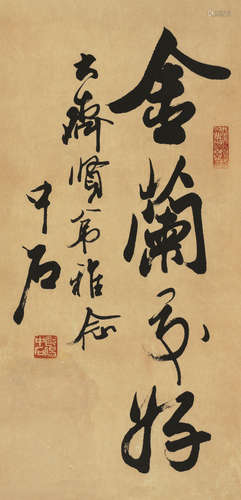 金蘭永好
大濟賢弟雅念
中石